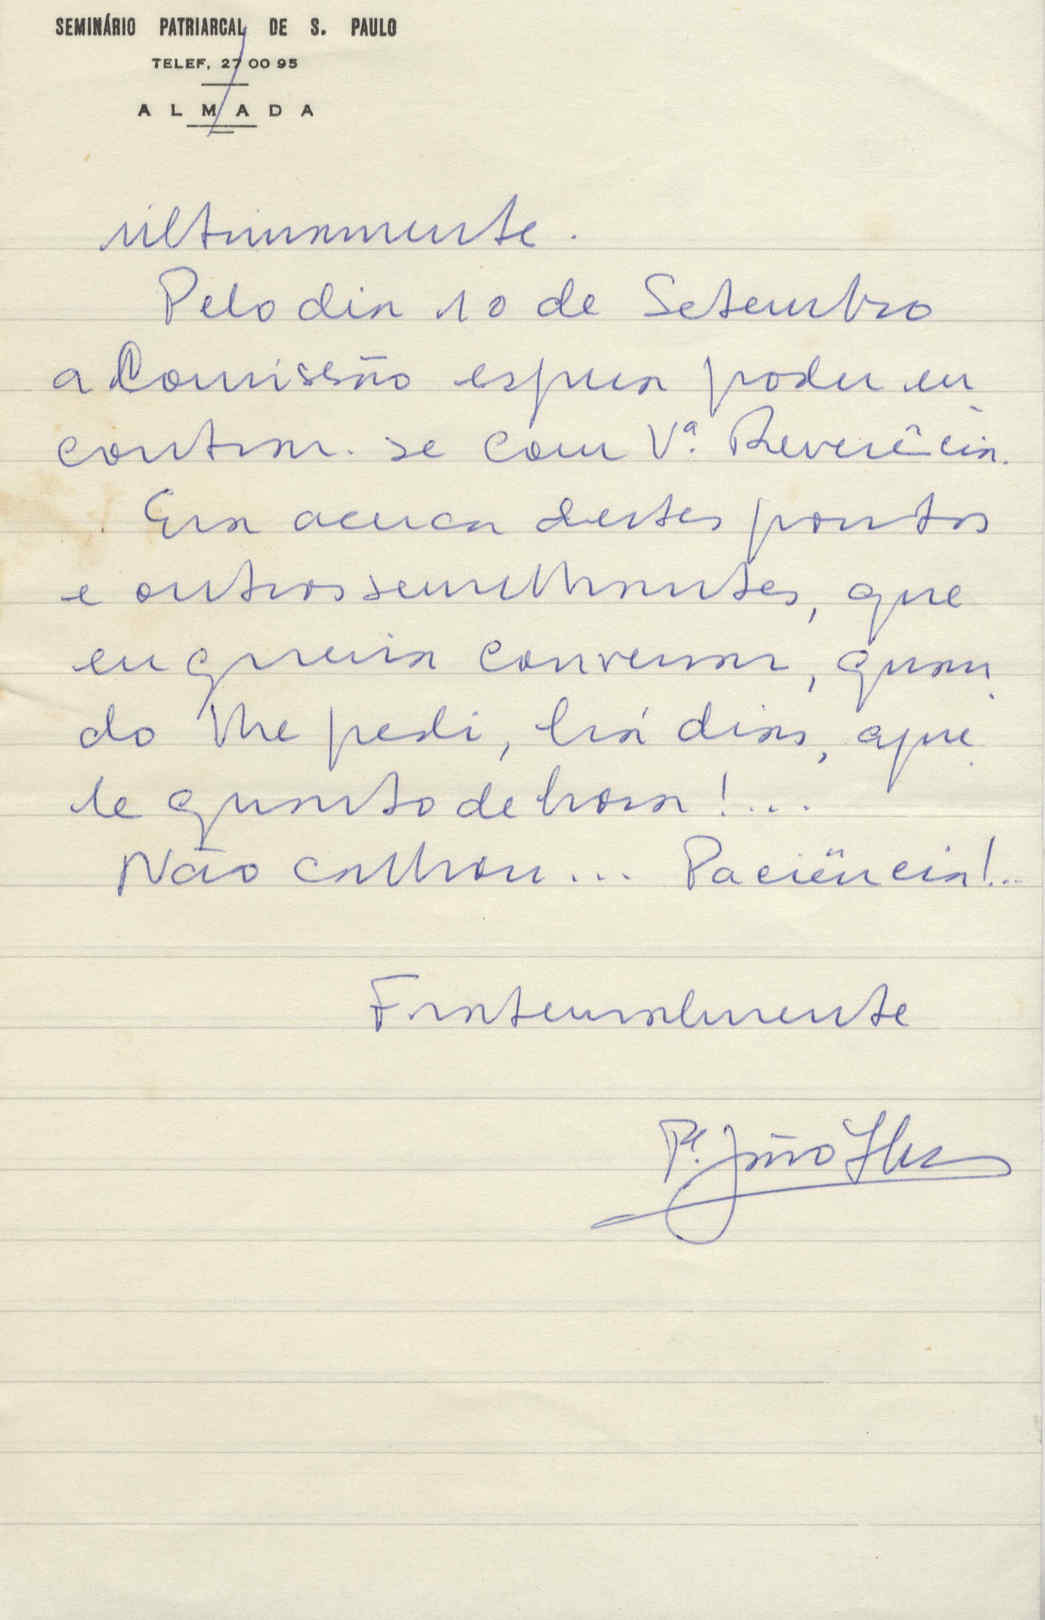 SEMINÁRIO PATRIARCAL DE S. PAULO
TELEF. 27 00 95
ALMADA
ultimamente.
Pelo dia 10 de Setembro
a Comissão espera poder en
contrar-se com Vª. Reverência.
Era acerca destes pontos
e outros semelhantes, que
eu queria conversar, quan
do lhe pedi, há dias, aque
le quarto de hora!...
Não calhou... Paciência!...
Fraternalmente
Pe. João